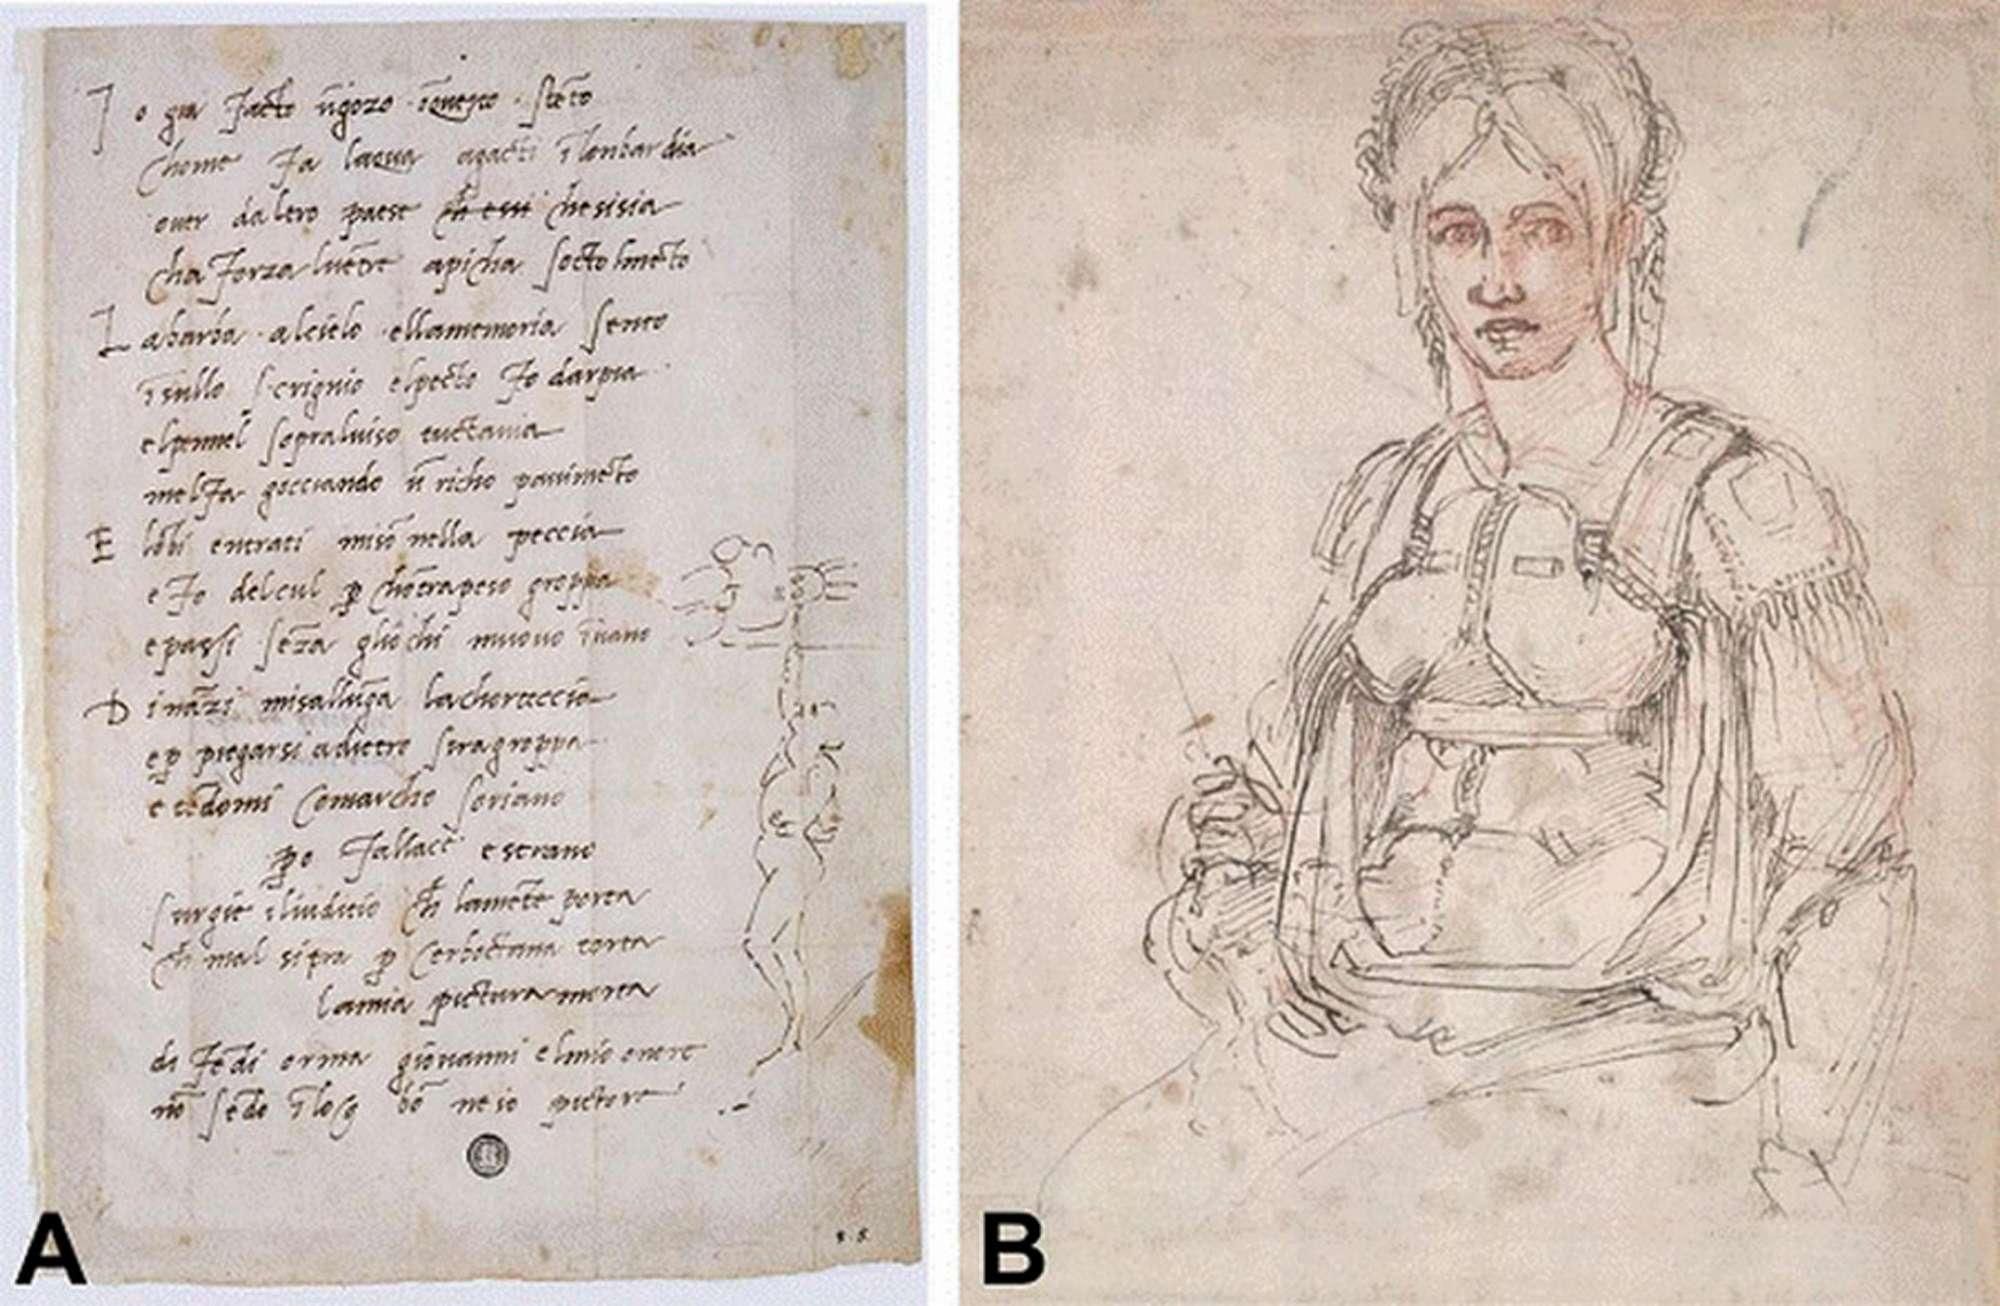 J o gia facto ũgozo ĩquesto stẽto
chome fa lacqua agacti ĩlonbardia
over daltro paese chesisia
cha forza luẽtre apicha socto lmẽto
L abarba alcielo ellamemoria sento
ĩsullo scrignio elpecto fo darpia
elpennel sopraluiso tuctauia
melfa gocciando ũ richo pauimẽto
E lõbi entrati misõ nella peccia
e fo delcul p chõtrapeso groppa
e passi sẽza gliochi muouo ĩuano
D inãzi misallũga lachorteccia
e p piegarsi adietro siragroppa
e tẽdomi comarcho soriano
po fallace e strano
surgie iliudicio ch lamẽte porta
ch mal sitra p cerboctana torta
lamia pictura morta
di fẽdi orma giouanni elmio onore
nõ sẽdo ĩloco bõ ne io pictore
A
B